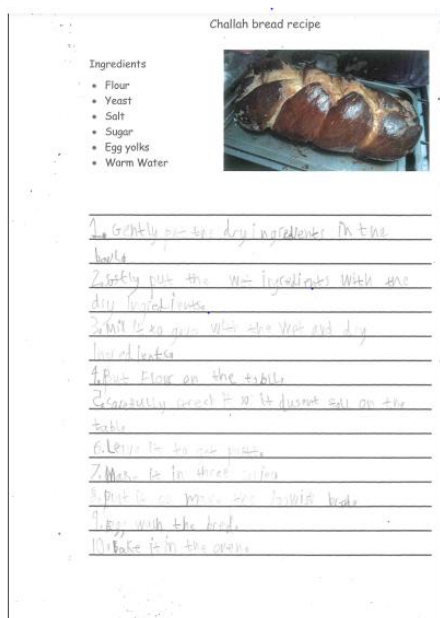 Challah bread recipe
Ingredients
• Flour
• Yeast
• Salt
• Sugar
• Egg yolks
• Warm Water
1. Gently put the dry ingredients in the
2. softly put the wet ingredients with the
dry ingredients.
3. mix it to with the wet and dry
Ingredients.
4. put Flour on the table.
5. carfully it so it dusent on the
table.
6. Leave it to get
7. Make it in three
8. put it to make the bred.
9. Egg wash the bred.
10. bake it in the oven.